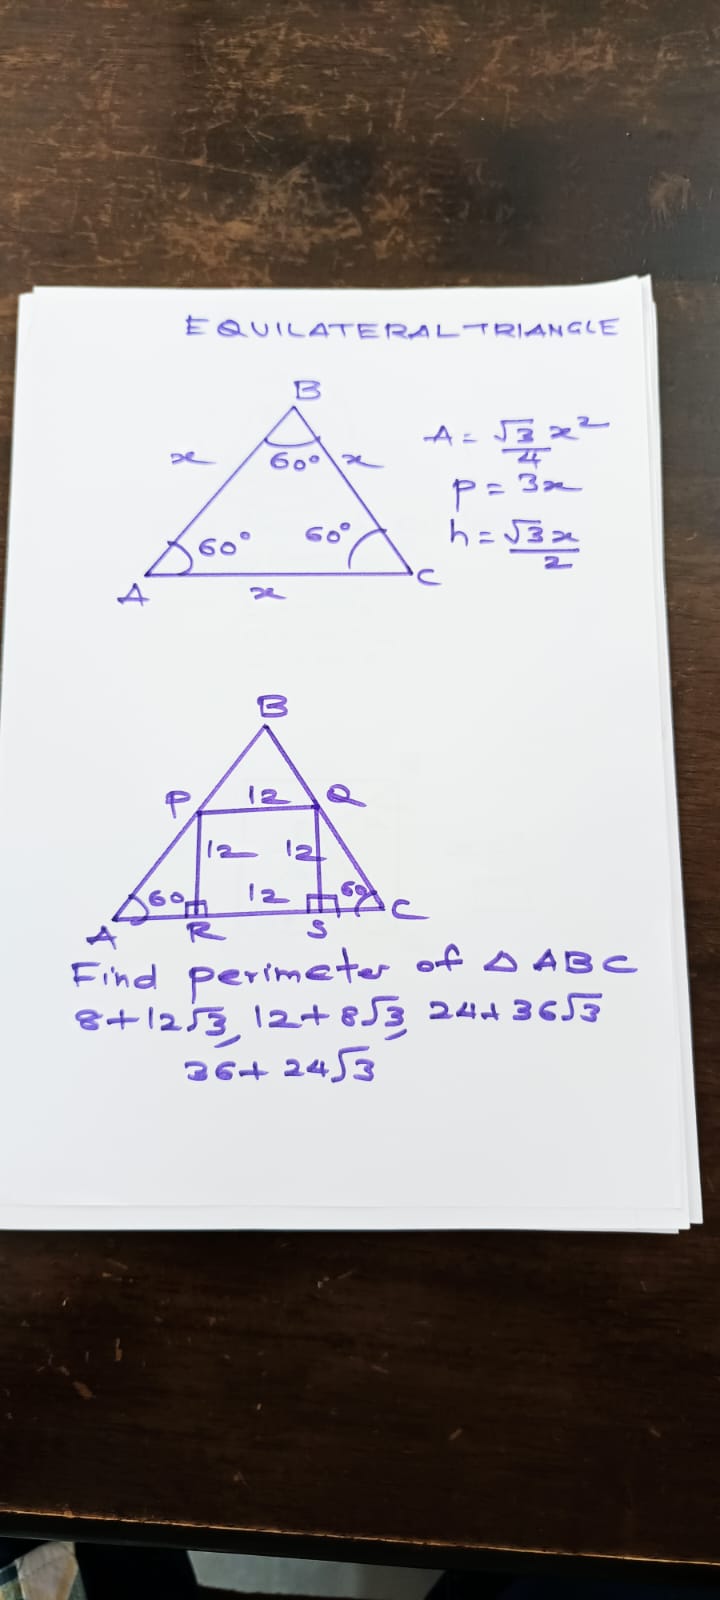 EQUILATERAL TRIANGLE
B
x 60° x
A = √3 x²/4
p = 3x
60° 60°
h = √3 x/2
A x C
B
P 12 Q
12 12
60 12 60
A R S C
Find perimeter of △ ABC
8+12√3, 12+8√3, 24+36√3
36+24√3